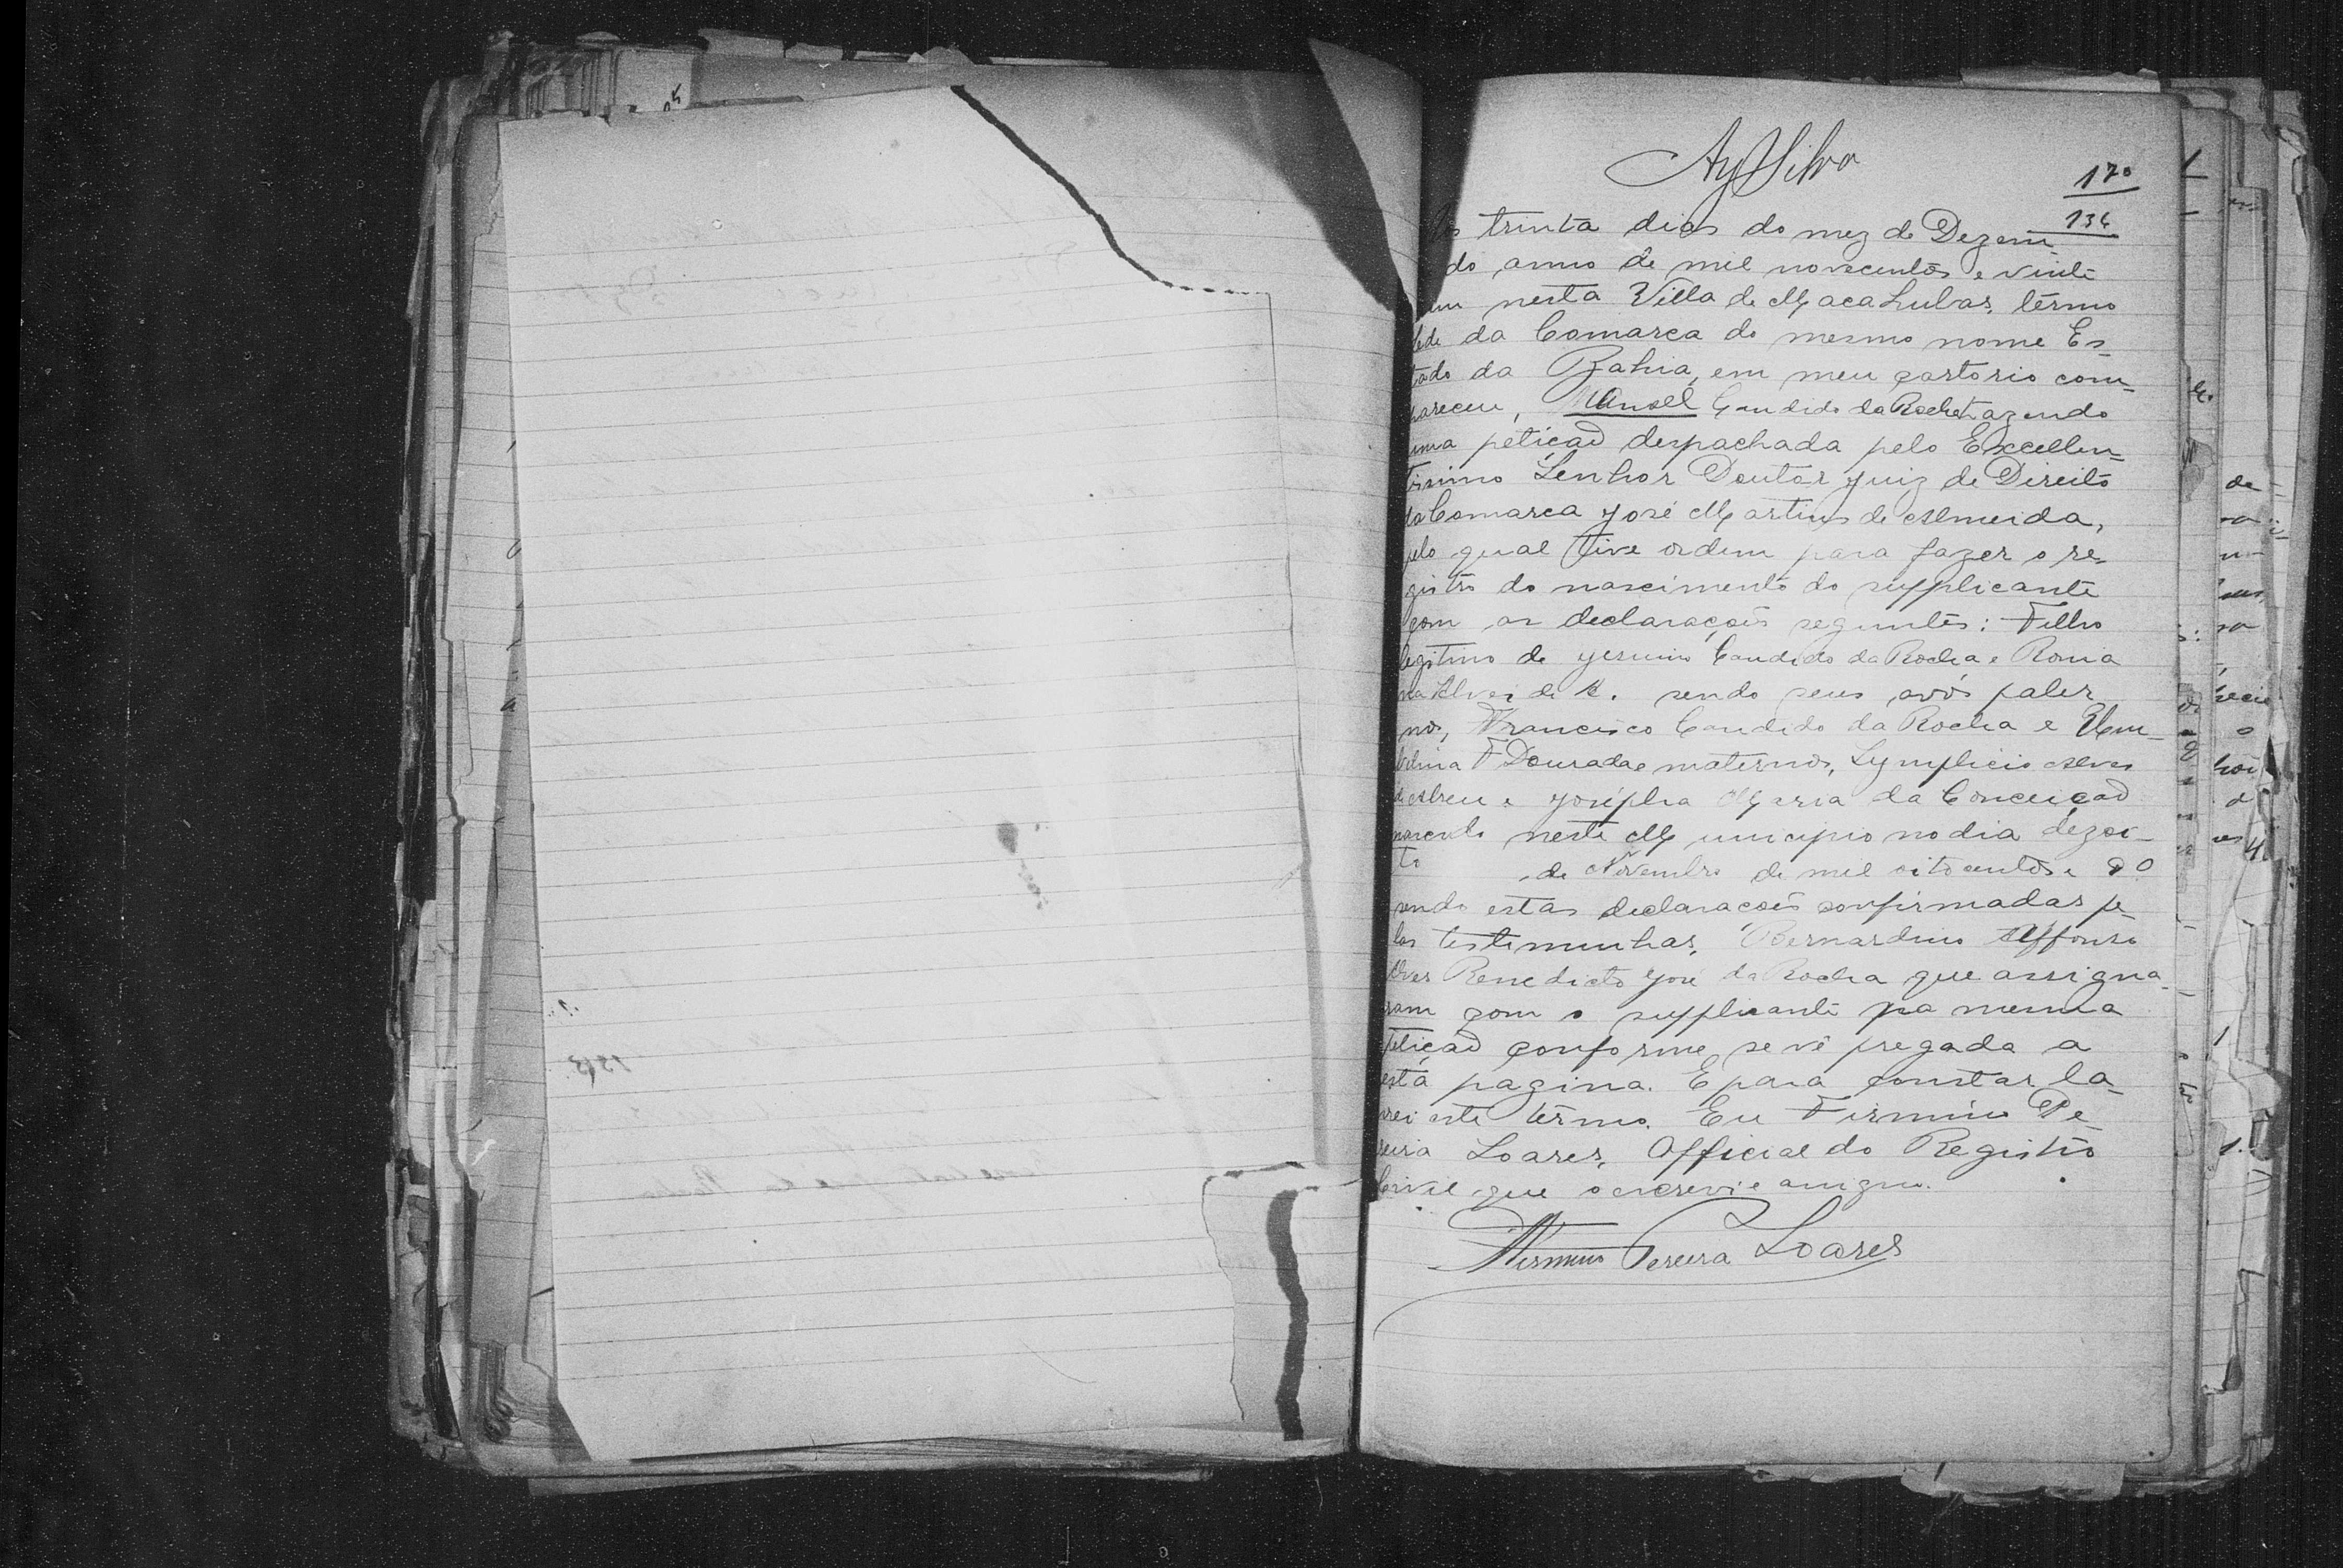 AySilva
170
134
Aos trinta dias do mez de Dezem
do anno de mil novecentos e vinte
um nesta Villa de Macahubas, têrmo
séde da Comarca do mesmo nome Es-
tado da Bahia, em meu cartorio com-
pareceu, Manoel Candido da Rocha trazendo
uma petição despachada pelo Excellen-
tissimo Senhor Doutor Juiz de Direito
da Comarca José Martins de Almeida,
pelo qual tive ordem para fazer o re-
gistro do nascimento do supplicante
com as declarações seguintes: Filho
legitimo de Jesuino Candido da Rocha e Roma
na Alves de A. sendo seus avós pater
nos, Francisco Candido da Rocha e
F Dourada e maternos, Symplicio Alves
de Abreu e Josépha Maria da Conceição
nascido neste Municipio no dia dezoi-
to de Novembro de mil oitocentos e 90
sendo estas declarações confirmadas pe-
las testimunhas, Bernardino Affonso
Alves Benedicto José da Rocha que assigna-
ram com o supplicante na mesma
petição conforme se vê pregada a
esta pagina. E para constar la-
vrei este têrmo. Eu Firmino Pe-
reira Soares, Official do Registro
Civil que o escrevi e assigno.
Firmino Pereira Soares